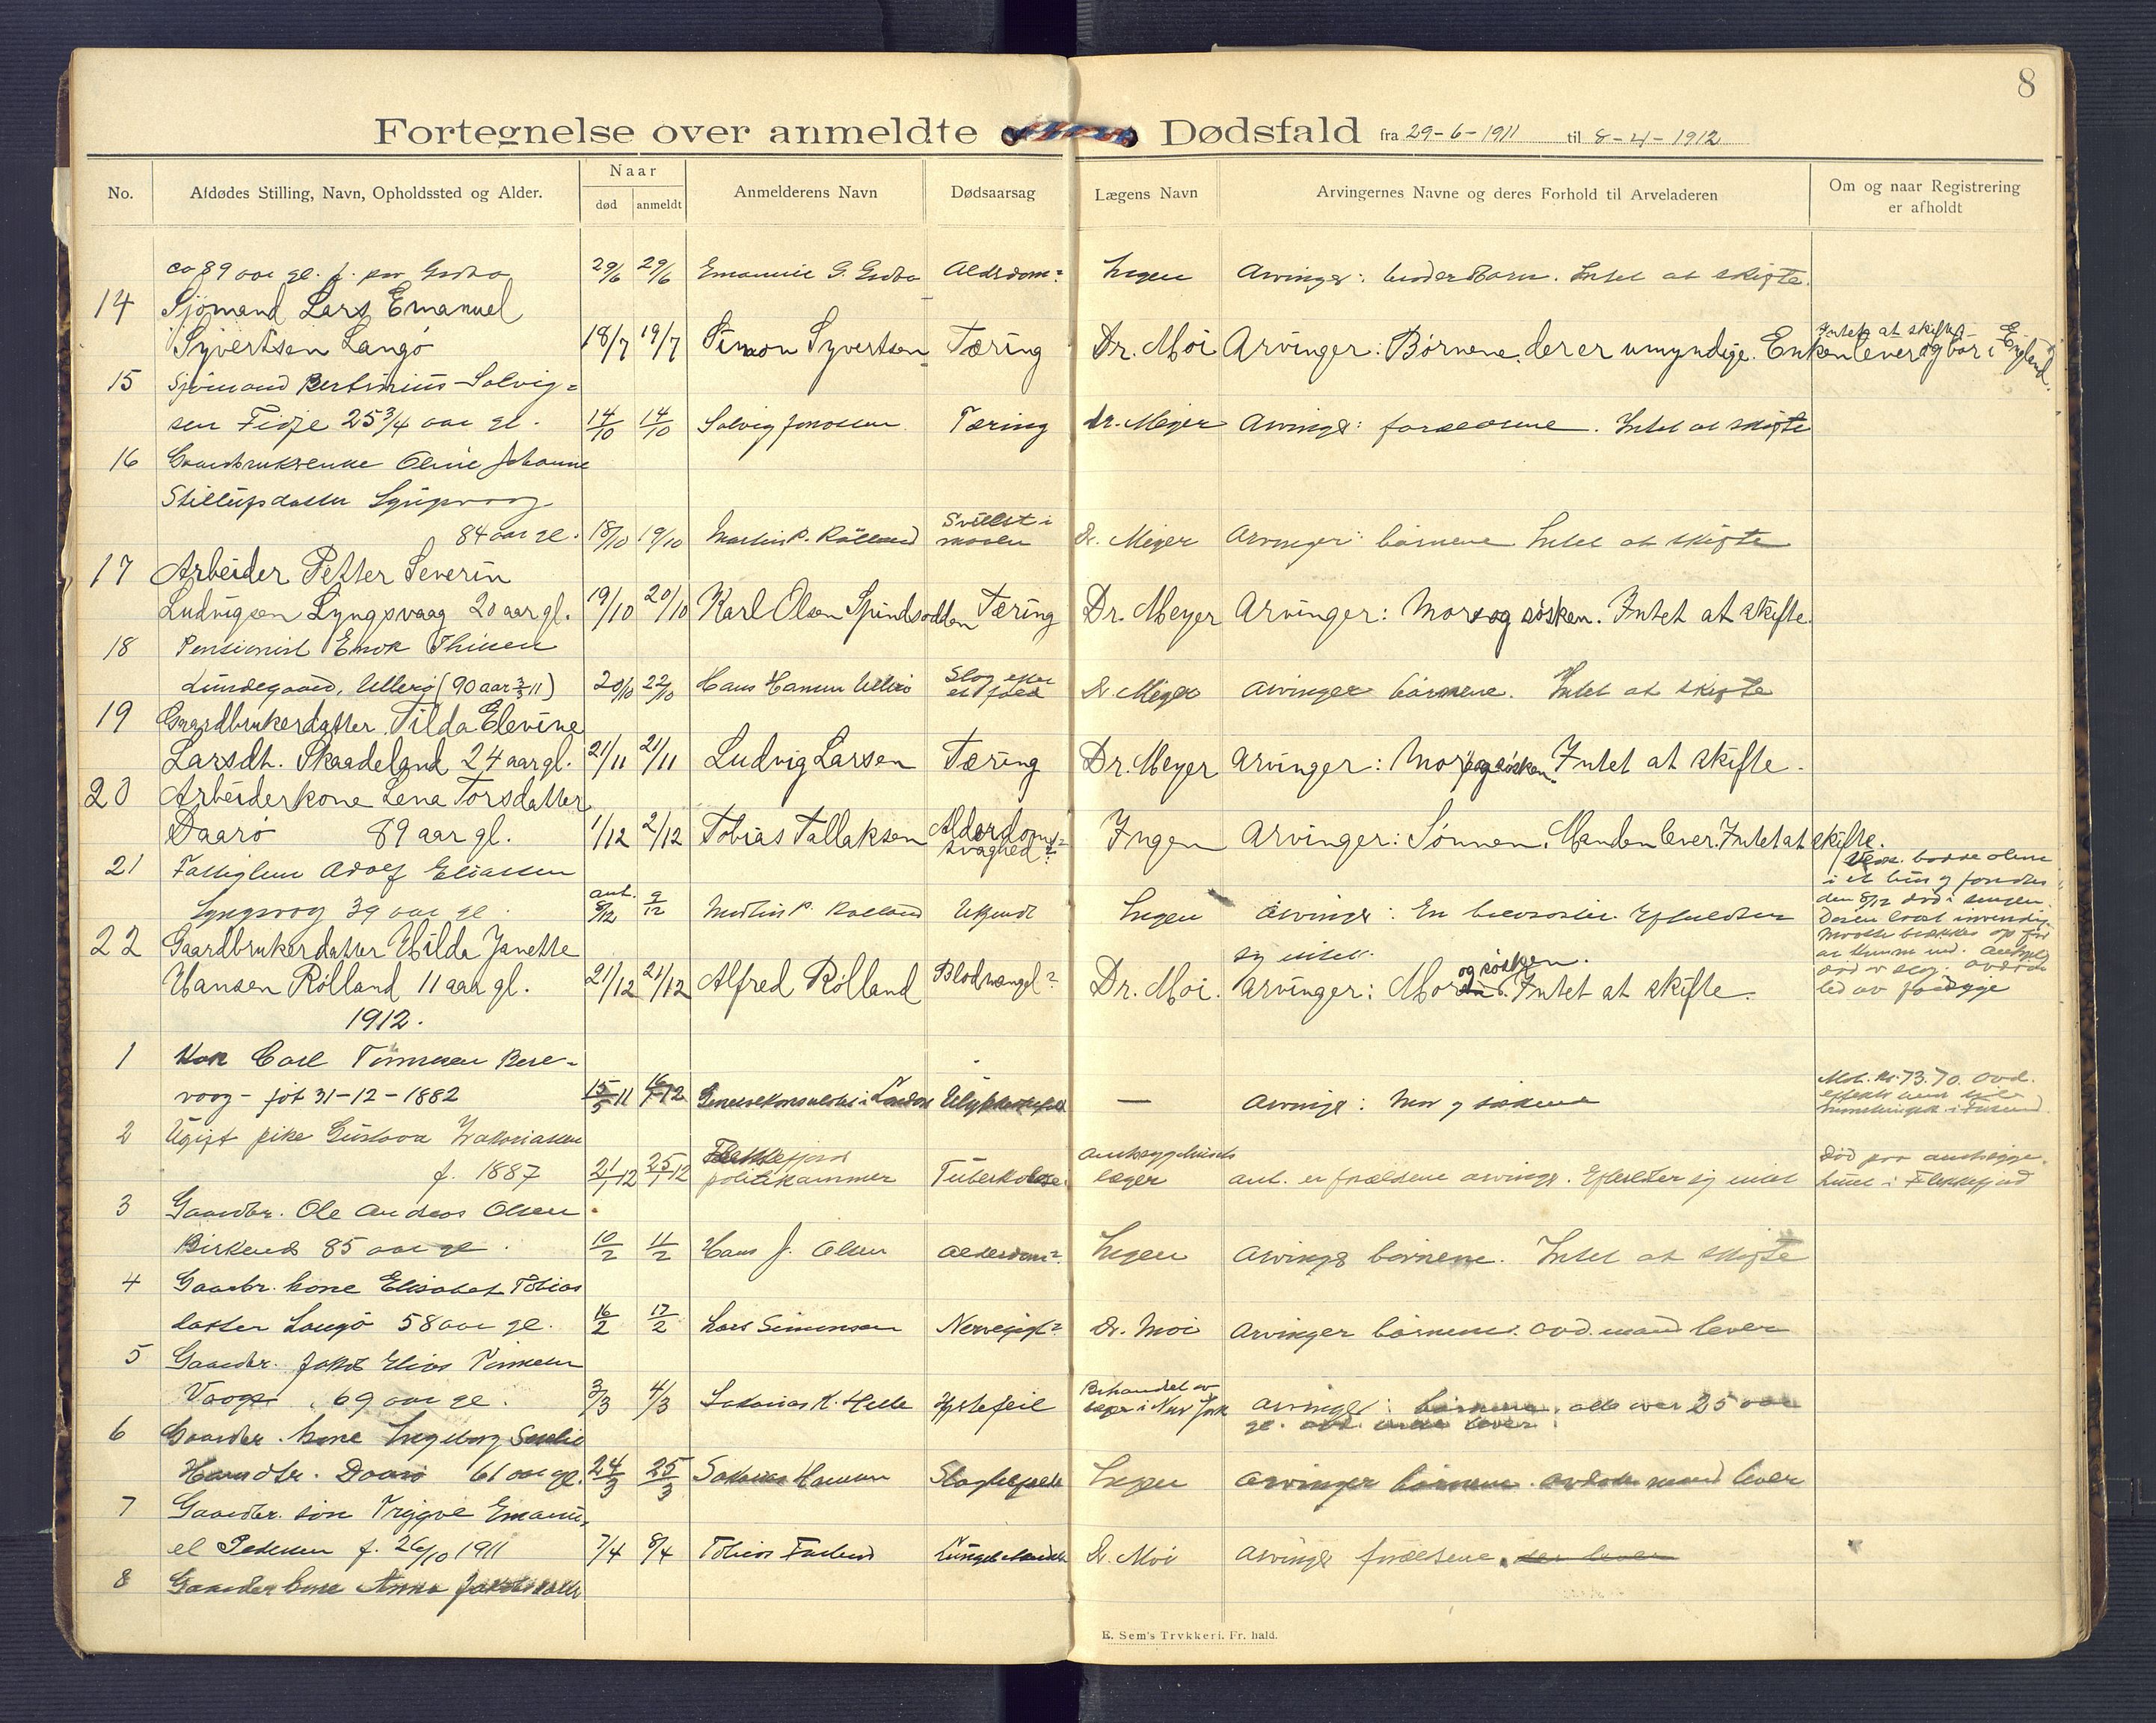 8
Fortegnelse over anmeldte Dødsfald fra 29-6-1911 til 8-4-1912
No. Afdødes Stilling, Navn, Opholdssted og Alder. Naar død anmeldt Anmelderens Navn Dødsaarsag Lægens Navn Arvingernes Navne og deres Forhold til Arveladeren Om og naar Registrering er afholdt
ca 89 aar gl. f. paa 29/6 29/6 Emanuel G. Alderdom? Ingen Arvinger: Barn. Intet at skifte.
14 Sjömand Lars Emanuel
Syvertsen Langö 18/7 19/7 Simon Syvertsen Tæring Dr. Moi Arvinger: Børnene, der er umyndige. Enken lever og bor i England. Intet at skifte
15 Sjömand Bertinius Salvig=
sen Fidje 25 3/4 aar gl. 14/10 14/10 Salvig Jonassen Tæring dr. Meyer Arvinger: forældrene. Intet at skifte
16 Gaardbrukerenke Oline Johanne
Stillufsdatter Lyngsvaag
84 aar gl. 18/10 19/10 Martin P. Rölland Svulst i maven Dr. Meyer Arvinger: børnene Intet at skifte
17 Arbeider Petter Severin
Ludvigsen Lyngsvaag 20 aar gl. 19/10 20/10 Karl Olsen Spindsodden Tæring Dr. Meyer Arvinger: Mor og søsken. Intet at skifte.
18 Pensionist Enok Thisen
Lundegaard, Ullerö (90 aar 3/3 11) 20/10 22/10 Hans Hansen Ullerö Slag efter et fald Dr. Meyer Arvinger børnene. Intet at skifte
19 Gaardbrukerdatter Tilda Elevine
Larsdt. Skaadeland 24 aar gl. 21/11 21/11 Ludvig Larsen Tæring Dr. Meyer Arvinger: Mor og søsken. Intet at skifte.
20 Arbeiderkone Lena Torsdatter
Daarö 89 aar gl. 1/12 2/12 Tobias Tallaksen Alderdoms= svaghed? Ingen Arvinger: Sønnen. Manden lever. Intet at skifte.
21 Fattiglem Adolf Eliassen
Lyngsvog 39 aar gl. ant. 8/12 9/12 Martin P. Rölland Ukjendt Ingen Arvinger: En Efterlater
sig intet.
bodde alene
i et hus og fandtes
den 8/12 død i sengen.
22 Gaardbrukerdatter Hilda Janette
Hansen Rölland 11 aar gl. 21/12 21/12 Alfred Rölland Blodmangel? Dr. Moi. Arvinger: Mor og søsken. Intet at skifte.
1912.
1 Carl Tønnesen Bere=
vaag - föt 31-12-1882 15/5 11 16/1 12 Generalkonsulatet i London Ulykkestilfelde — Arvinger: Mor og søskene
2 Ugift pike Gustava Zakariassen
f. 1887 21/1 12 25/1 12 Flekkefjord politikammer Tuberkulose Amtssygehusets læger ant. er forældrene arvinger. Efterlater sig intet Död paa amtssyge= huset i Flekkefjord
3 Gaardbr. Ole Andreas Olsen
Birkenes 85 aar gl. 10/2 11/2 Hans J. Olsen Alderdom? Ingen Arvinger børnene. Intet at skifte
4 Gaardbr. kone Elisabet Tobias
datter Langö 58 aar gl. 16/2 17/2 Lars Simonsen Nervegigt? Dr. Moi Arvinger børnene. avd. mand lever
5 Gaardbr. Jakob Elias Tønnesen
Vaage, 69 aar gl. 3/3 4/3 Sakarias K. Helle Hjertefeil Behandlet av læge i New York Arvinger: børnene. alle over 25 aar
gl. avd. enke lever.
6 Gaardbr. kone Ingeborg
Hansdtr. Daarö 61 aar gl. 24/3 25/3 Hansen Slagtilfælde Ingen Arvinger børnene. avdödes mand lever
7 Gaardbr. sön Trygve Emanu=
el Pedersen f. 26/10 1911 7/4 8/4 Tobias Dr. Moi Arvinger forældrene, der lever
8 Gaardbr kone Anna Jakobsdatter
E. Sem's Trykkeri. Fr. hald.